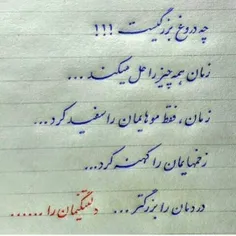 چه دروغ بزرگیست !!!
زمان همه چیز را حل میکند ...
زمان، فقط موهایمان را سفید کرد ...
زخمهایمان را کهنه کرد...
دردمان را بزرگتر ... دلتنگیمان را ......